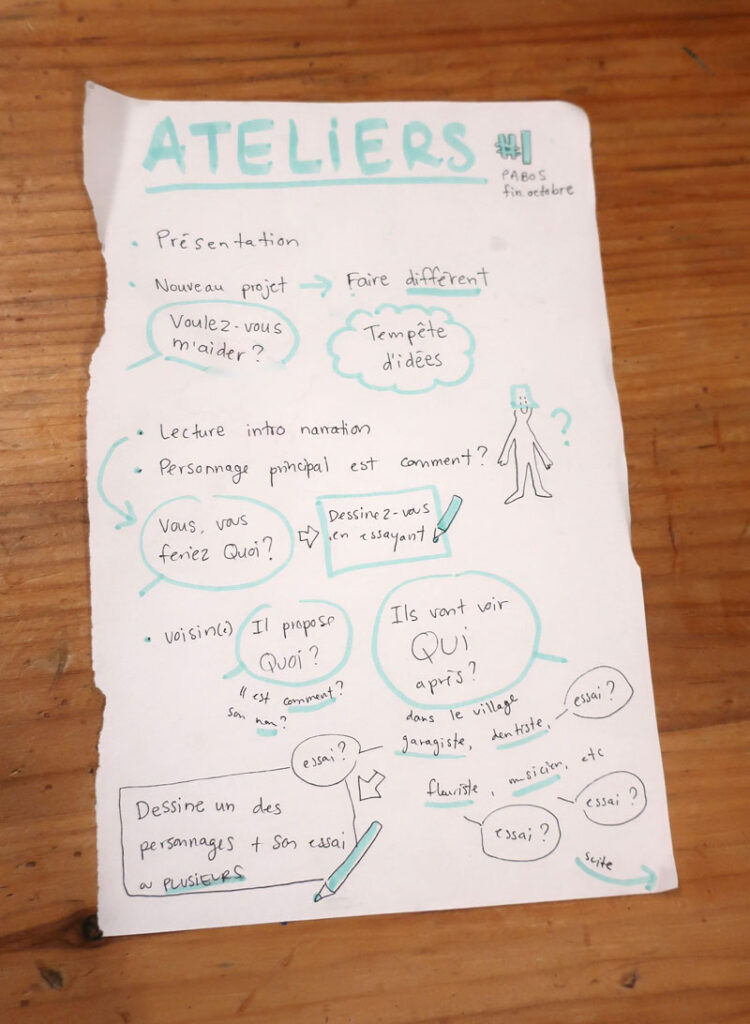 ATELiERS #1
PABOS
fin octobre
• Présentation
• Nouveau projet → Faire différent
Voulez-vous
m'aider ?
Tempête
d'idées
• Lecture intro narration
• Personnage principal est comment ?
?
Vous, vous
feriez Quoi ?
Dessinez-vous
en essayant
• Voisin(e)
Il propose
Quoi ?
Il est comment ?
Son nom ?
Ils vont voir
QUI
après ?
dans le village
garagiste, dentiste,
essai ?
fleuriste, musicien, etc
essai ?
essai ?
essai ?
Dessine un des
personnages + son essai
ou PLUSIEURS
suite